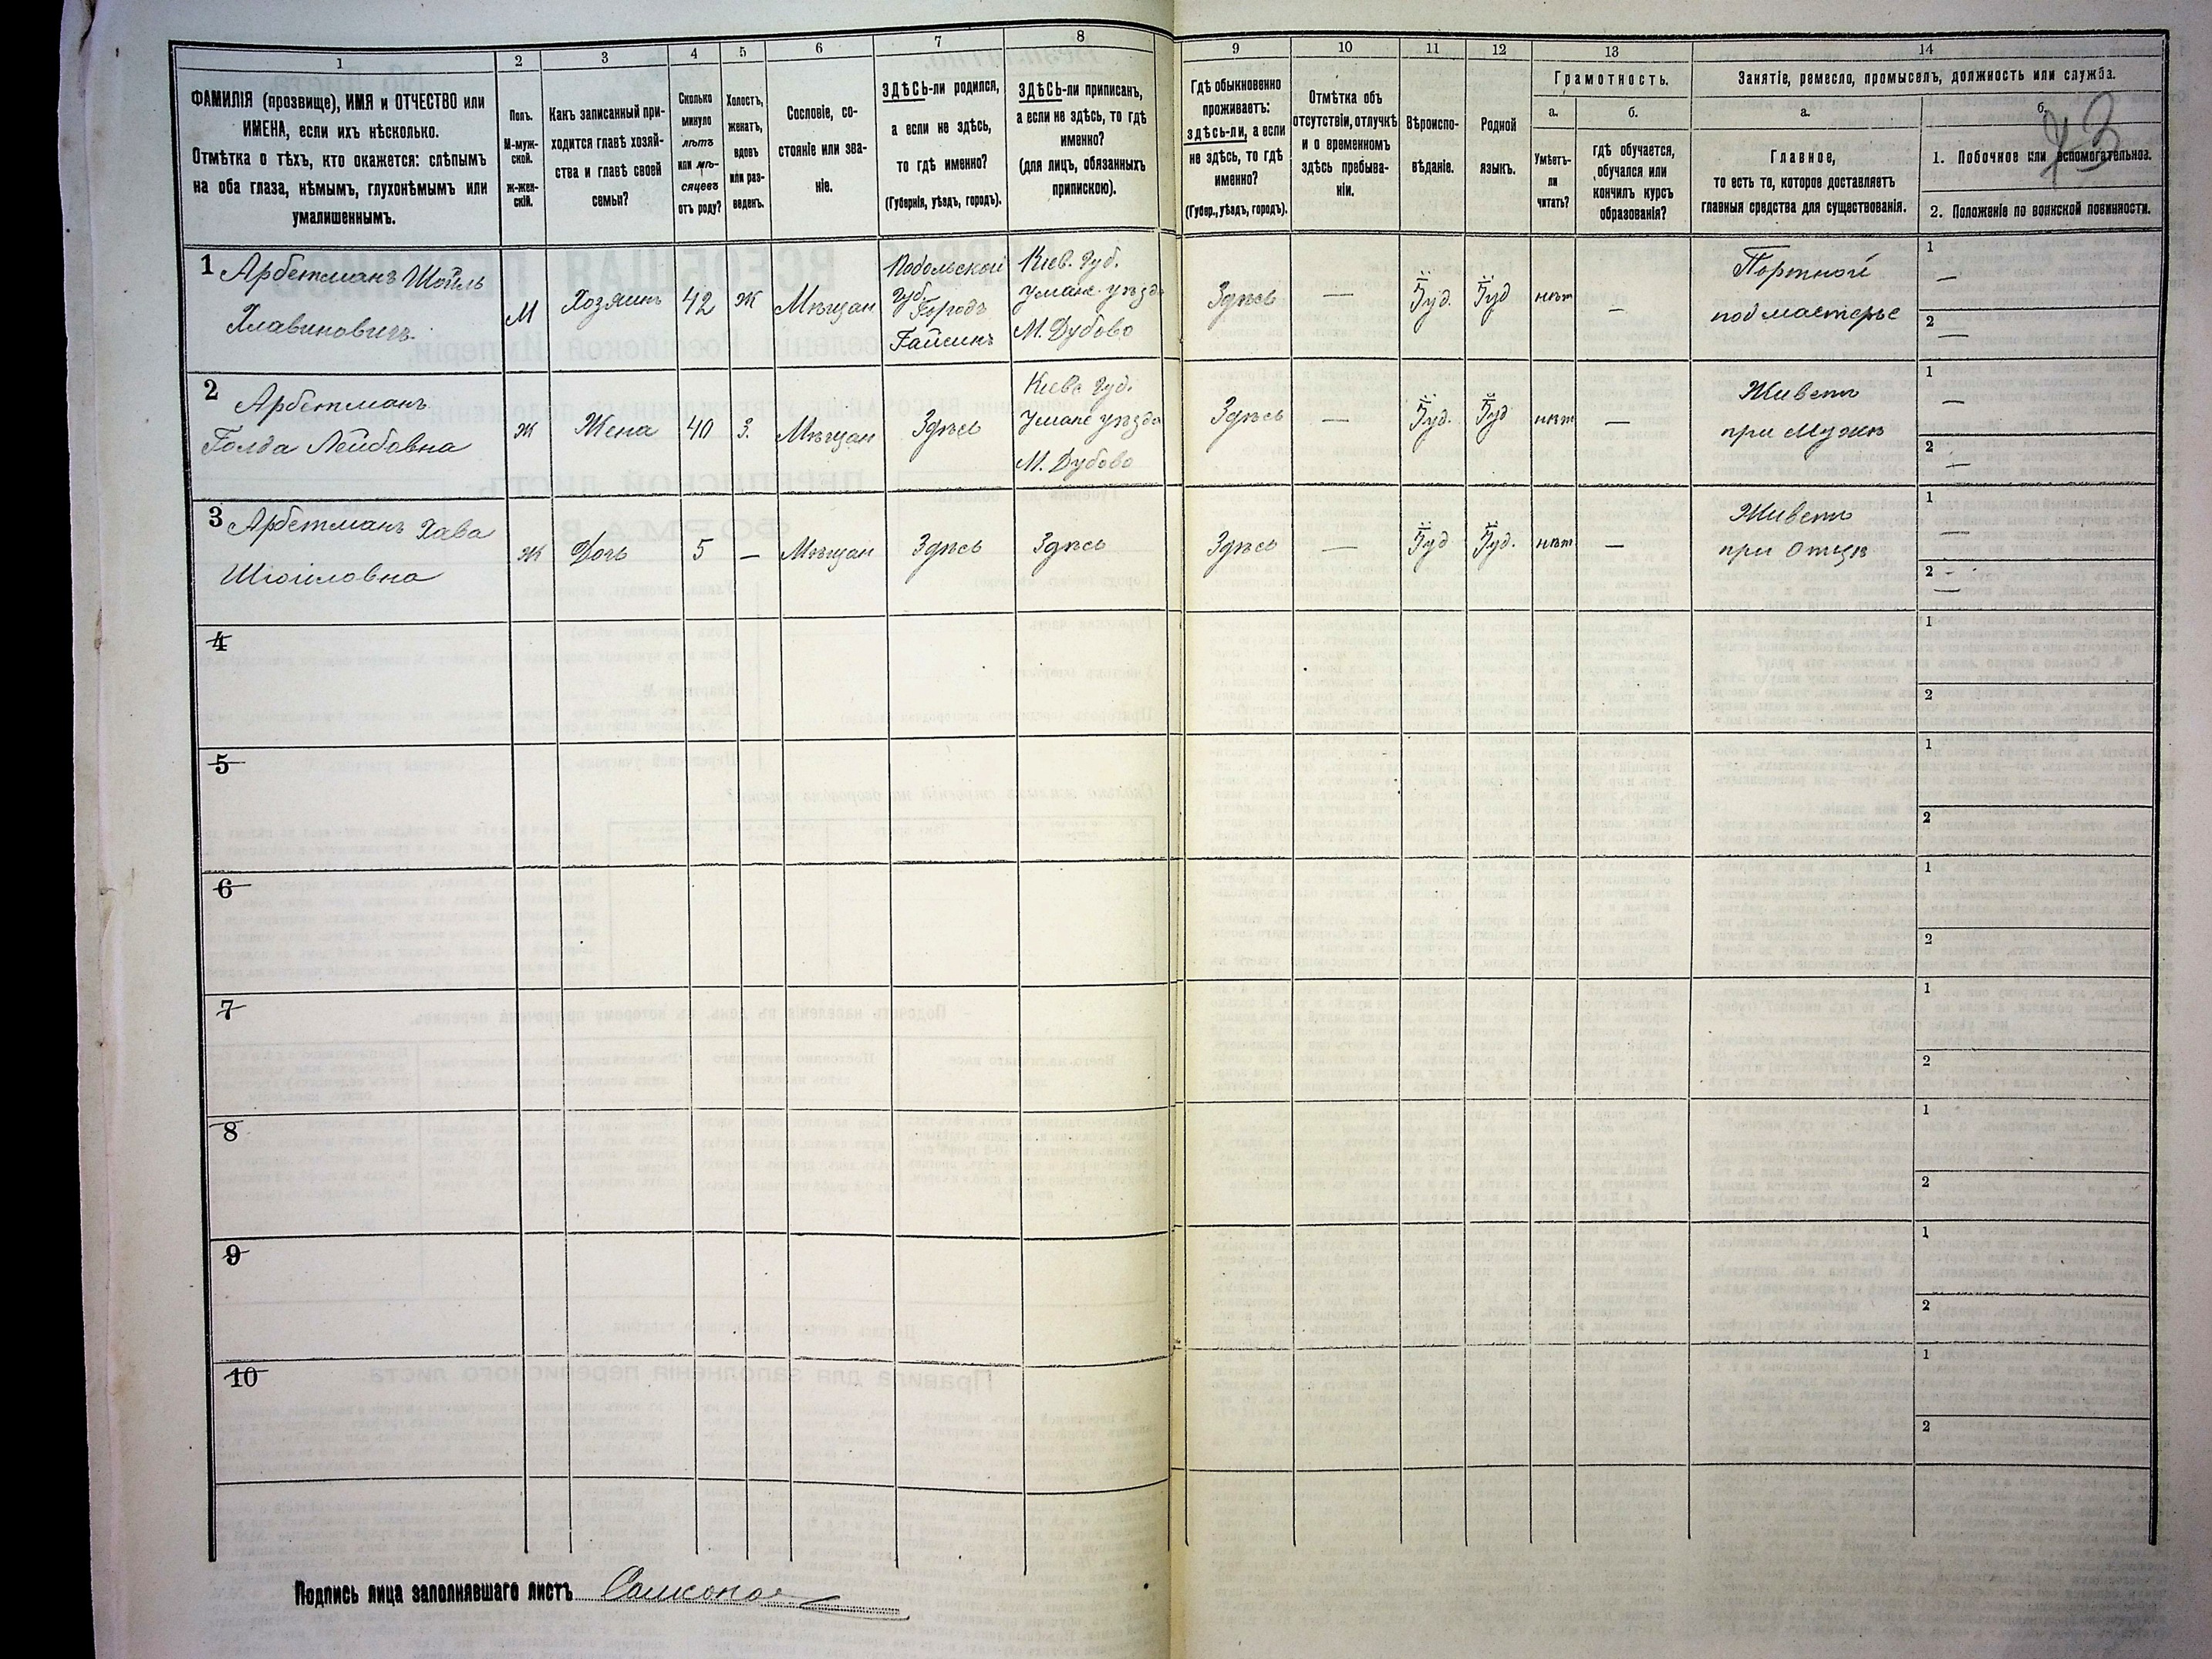 1
ФАМИЛІЯ (прозвище), ИМЯ и ОТЧЕСТВО или
ИМЕНА, если ихъ нѣсколько.
Отмѣтка о тѣхъ, кто окажется: слѣпымъ
на оба глаза, нѣмымъ, глухонѣмымъ или
умалишеннымъ.
2
Полъ.
М-муж-
ской.
ж-жен-
скій.
3
Какъ записанный при-
ходится главѣ хозяй-
ства и главѣ своей
семьи?
4
Сколько
минуло
лѣтъ
или мѣ-
сяцевъ
отъ роду?
5
Холостъ,
женатъ,
вдовъ
или раз-
веденъ.
6
Сословіе, со-
стояніе или зва-
ніе.
7
ЗДѢСЬ-ли родился,
а если не здѣсь,
то гдѣ именно?
(Губернія, уѣздъ, городъ).
8
ЗДѢСЬ-ли приписанъ,
а если не здѣсь, то гдѣ
именно?
(для лицъ, обязанныхъ
припискою).
9
Гдѣ обыкновенно
проживаетъ:
здѣсь-ли, а если
не здѣсь, то гдѣ
именно?
(Губер., уѣздъ, городъ).
10
Отмѣтка объ
отсутствіи, отлучкѣ
и о временномъ
здѣсь пребыва-
ніи.
11
Вѣроиспо-
вѣданіе.
12
Родной
языкъ.
13
Грамотность.
а.
Умѣетъ-
ли
читать?
б.
гдѣ обучается,
обучался или
кончилъ курсъ
образованія?
14
Занятіе, ремесло, промыселъ, должность или служба.
а.
Главное,
то есть то, которое доставляетъ
главныя средства для существованія.
б.
1. Побочное или вспомогательное.
2. Положеніе по воинской повинности.
1 Арбетманъ Шойль
Хлавиновичъ
М
Хозяинъ
42
Ж
Мѣщан
Подольской
Губ. Городъ
Гайсинъ
Кіев. Губ.
Уманс. уѣзда
М. Дубово
Здѣсь
—
Іуд.
Іуд
нѣт
—
Портной
подмастерье
1
—
2
—
2
Арбетманъ
Голда Лейбовна
Ж
Жена
40
З.
Мѣщан
Здѣсь
Кіевс Губ.
Уманс уѣзда
М. Дубово
Здѣсь
—
Іуд.
Іуд
нѣт
—
Живетъ
при Мужѣ
1
—
2
—
3 Арбетманъ Хава
Шіойловна
Ж
Дочь
5
—
Мѣщан
Здѣсь
Здѣсь
Здѣсь
—
Іуд
Іуд.
нѣт
—
Живетъ
при Отцѣ
1
—
2
—
4
1
2
5
1
2
6
1
2
7
1
2
8
1
2
9
1
2
10
1
2
Подпись лица заполнявшаго листъ